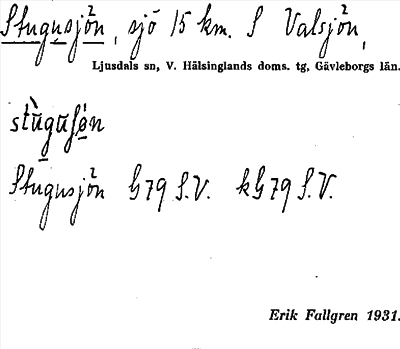 Stugusjön, sjö 15 km. S Valsjön,
Ljusdals sn, V. Hälsinglands doms. tg, Gävleborgs län.
Stugusjön G79 S.V. kG79 S.V.
Erik Fallgren 1931.